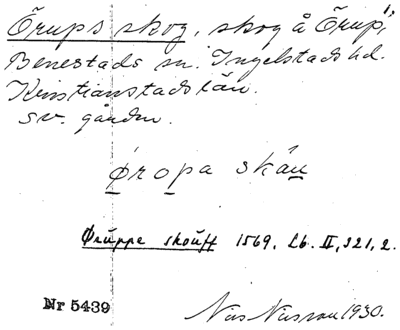 Örups skog, skog å Örup,
Benestads sn. Ingelstads hd.
Kristianstads län.
sv. gården.
Øropa skåu
Ørüppe skoüff 1569, Lb. II, 321, 2.
Nr 5439
Nils Nilsson 1930.